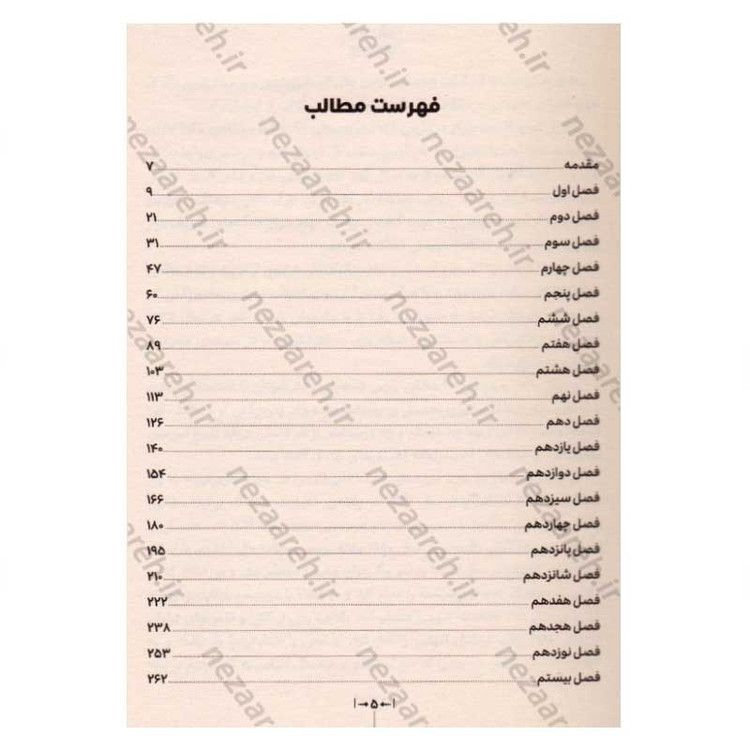 فهرست مطالب
مقدمه ۷
فصل اول ۹
فصل دوم ۲۱
فصل سوم ۳۱
فصل چهارم ۴۷
فصل پنجم ۶۰
فصل ششم ۷۶
فصل هفتم ۸۹
فصل هشتم ۱۰۳
فصل نهم ۱۱۳
فصل دهم ۱۲۶
فصل یازدهم ۱۴۰
فصل دوازدهم ۱۵۴
فصل سیزدهم ۱۶۶
فصل چهاردهم ۱۸۰
فصل پانزدهم ۱۹۵
فصل شانزدهم ۲۱۰
فصل هفدهم ۲۲۲
فصل هجدهم ۲۳۸
فصل نوزدهم ۲۵۳
فصل بیستم ۲۶۲
۵
nezaareh.ir